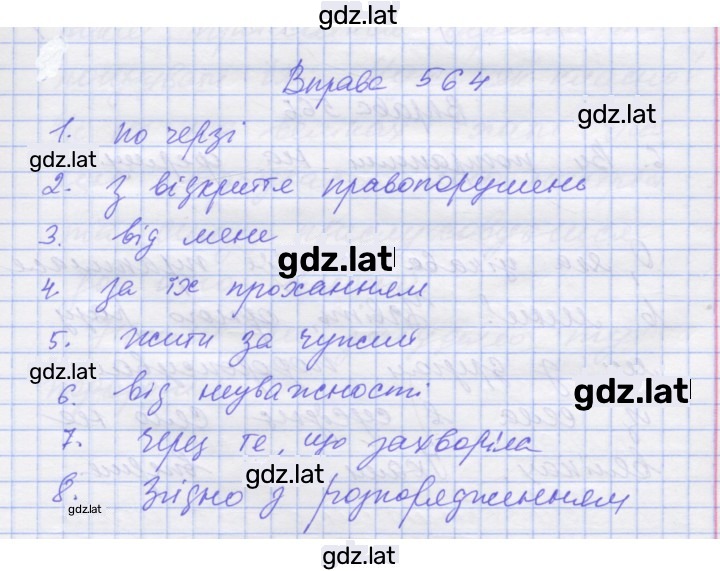 gdz.lat
Вправа 564
gdz.lat
1. по черзі
gdz.lat
2. з відкриття правопорушень
3. від мене
gdz.lat
4. за їх проханням
5. жити за чужий
gdz.lat
6. від неуважності
gdz.lat
7. через те, що захворіла
gdz.lat
8. Згідно з розпорядженням
gdz.lat
gdz.lat